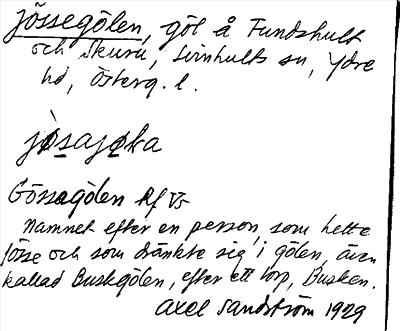 Jössegölen, göl å Fundshult
och Skuru, Svinhults sn, Ydre
hd, Österg. l.
Gössagölen Rf V5
Namnet efter en person, som hette
Jösse och som dränkte sig i gölen, även
kallad Buskgölen, efter ett torp, Busken.
Axel Sandström 1929